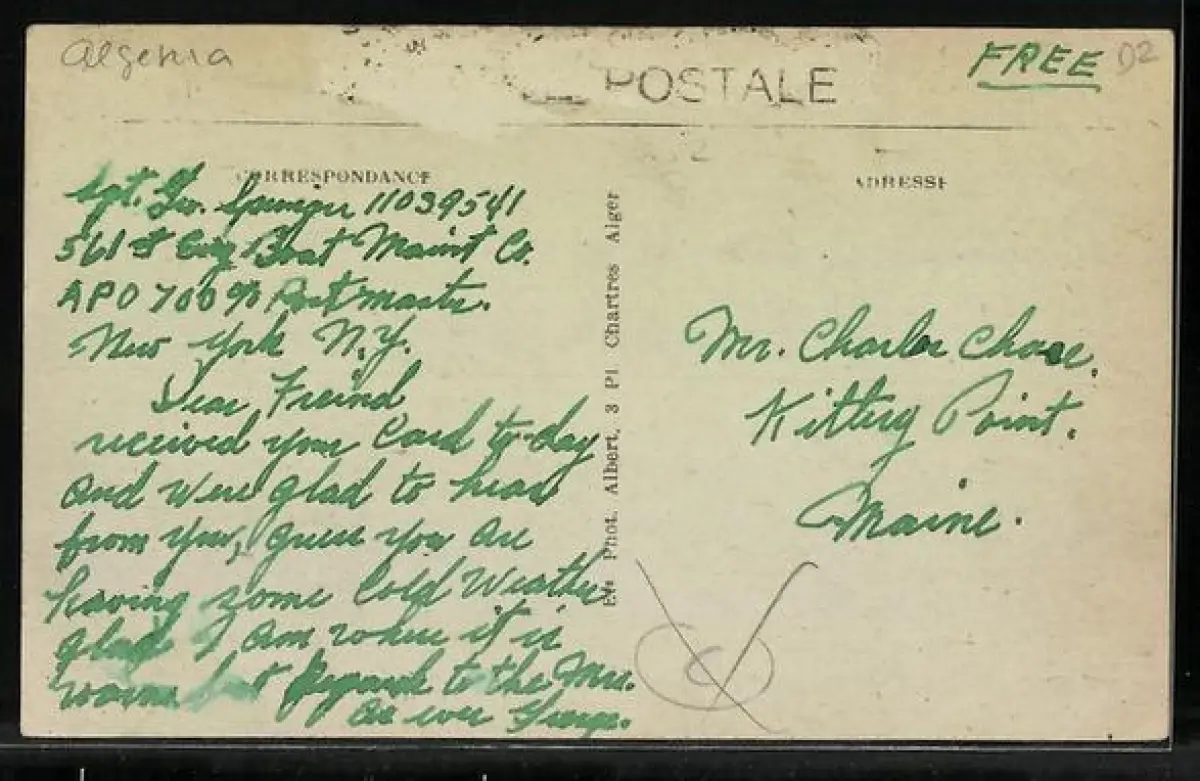 Algeria
POSTALE
FREE
D2
CORRESPONDANCE
ADRESSE
Sgt. Geo. 11039541
561st Eng Boat Maint Co.
APO 700 % Postmaster.
New York N.Y.
Dear Freind
received your Card to-day
and were glad to hear
from you, guess you are
having some Cold Weather
glad I am where it is
warm Regards to the Mrs.
As ever George.
Phot. Albert, 3 Pl. Chartres Alger
Mr. Charles Chase.
Kittery Point.
Maine.
C